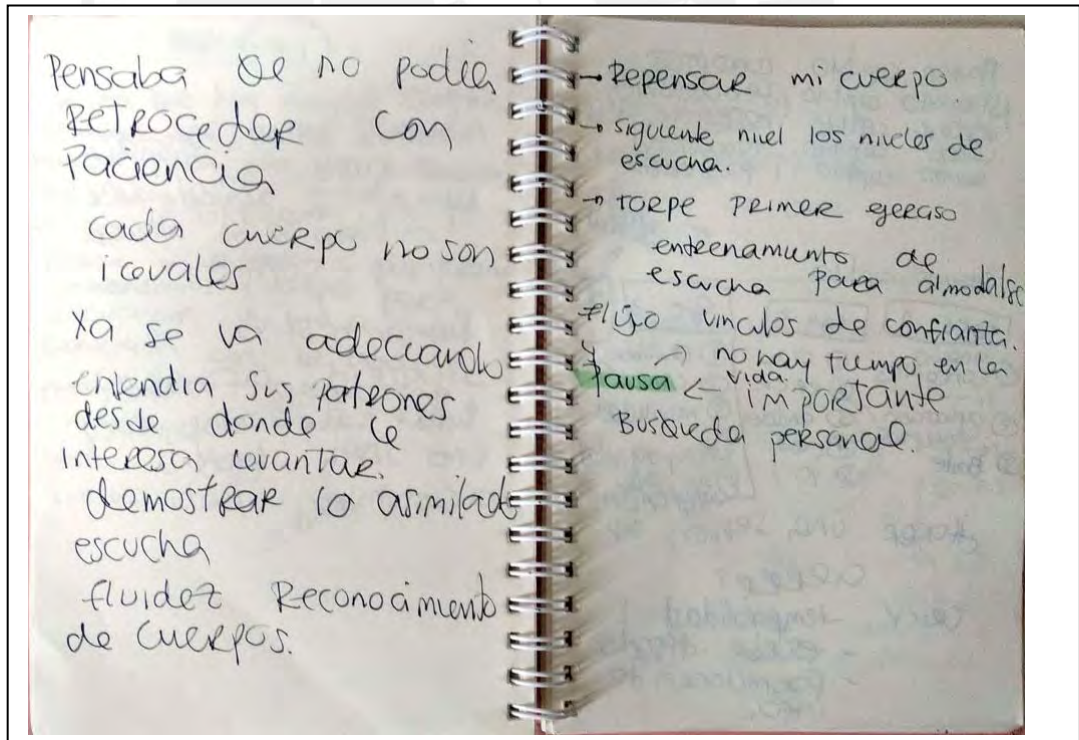 Pensaba Qe no podia
Retroceder con
Paciencia
cada cuerpo no son
icuales
Ya se va adecuando
entendia sus patrones
desde donde le
interesa levantar.
demostrar lo asimilado
escucha
fluidez Reconocimiento
de cuerpos.
→ Repensar mi cuerpo
→ siguiente nivel los niveles de
escucha.
→ torpe primer
entrenamiento de
escucha para
flujo vinculos de confianza.
y → no hay tiempo en la
vida.
Pausa ← IMPORTANTE
Busqueda personal.